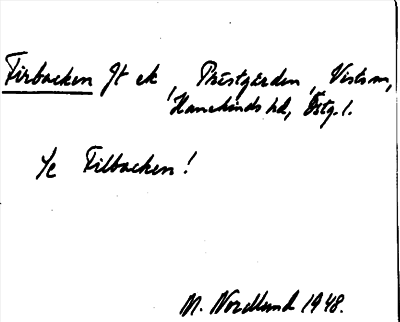 Firbacken Jt ek, Prästgården, Viists sn,
Hanekinds hd, Östg. l.
Se Filbacken!
M. Nordlund 1948.